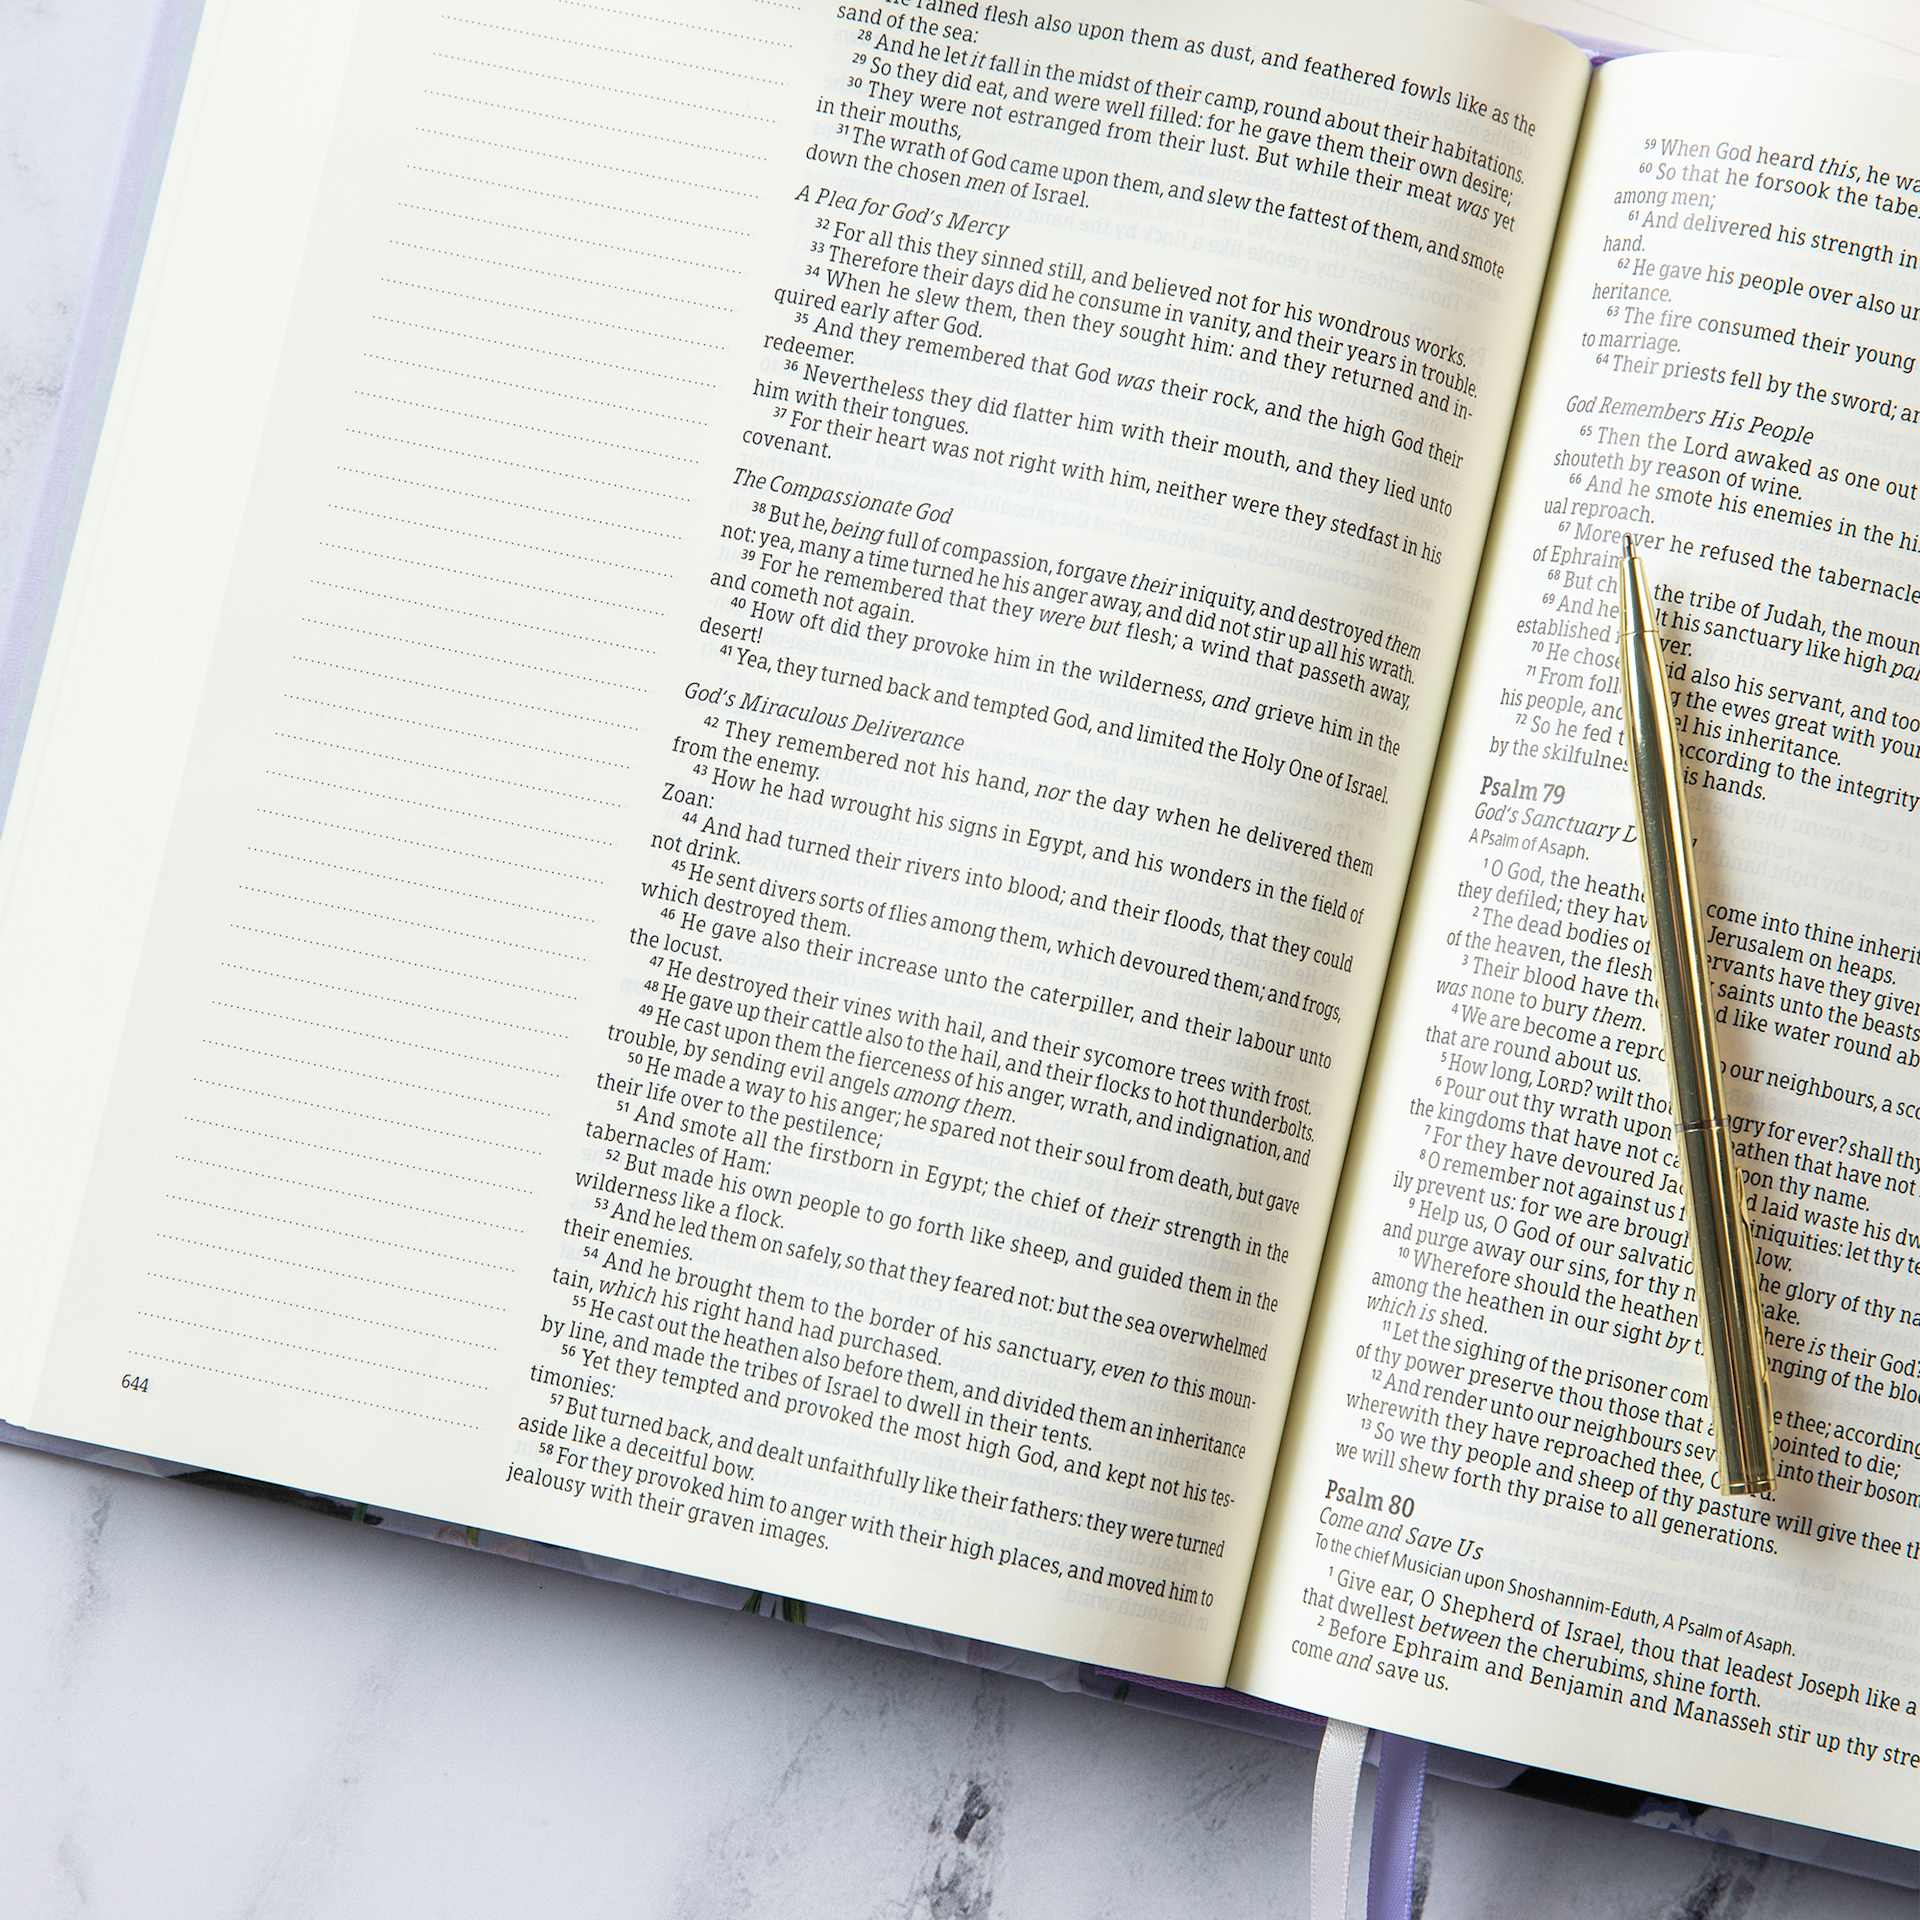 rained flesh also upon them as dust, and feathered fowls like as the
sand of the sea:
28 And he let it fall in the midst of their camp, round about their habitations.
29 So they did eat, and were well filled: for he gave them their own desire;
30 They were not estranged from their lust. But while their meat was yet
in their mouths,
31 The wrath of God came upon them, and slew the fattest of them, and smote
down the chosen men of Israel.
A Plea for God's Mercy
32 For all this they sinned still, and believed not for his wondrous works.
33 Therefore their days did he consume in vanity, and their years in trouble.
34 When he slew them, then they sought him: and they returned and in-
quired early after God.
35 And they remembered that God was their rock, and the high God their
redeemer.
36 Nevertheless they did flatter him with their mouth, and they lied unto
him with their tongues.
37 For their heart was not right with him, neither were they stedfast in his
covenant.
The Compassionate God
38 But he, being full of compassion, forgave their iniquity, and destroyed them
not: yea, many a time turned he his anger away, and did not stir up all his wrath.
39 For he remembered that they were but flesh; a wind that passeth away,
and cometh not again.
40 How oft did they provoke him in the wilderness, and grieve him in the
desert!
41 Yea, they turned back and tempted God, and limited the Holy One of Israel.
God's Miraculous Deliverance
42 They remembered not his hand, nor the day when he delivered them
from the enemy.
43 How he had wrought his signs in Egypt, and his wonders in the field of
Zoan:
44 And had turned their rivers into blood; and their floods, that they could
not drink.
45 He sent divers sorts of flies among them, which devoured them; and frogs,
which destroyed them.
46 He gave also their increase unto the caterpiller, and their labour unto
the locust.
47 He destroyed their vines with hail, and their sycomore trees with frost.
48 He gave up their cattle also to the hail, and their flocks to hot thunderbolts.
49 He cast upon them the fierceness of his anger, wrath, and indignation, and
trouble, by sending evil angels among them.
50 He made a way to his anger; he spared not their soul from death, but gave
their life over to the pestilence;
51 And smote all the firstborn in Egypt; the chief of their strength in the
tabernacles of Ham:
52 But made his own people to go forth like sheep, and guided them in the
wilderness like a flock.
53 And he led them on safely, so that they feared not: but the sea overwhelmed
their enemies.
54 And he brought them to the border of his sanctuary, even to this moun-
tain, which his right hand had purchased.
55 He cast out the heathen also before them, and divided them an inheritance
by line, and made the tribes of Israel to dwell in their tents.
56 Yet they tempted and provoked the most high God, and kept not his tes-
timonies:
57 But turned back, and dealt unfaithfully like their fathers: they were turned
aside like a deceitful bow.
58 For they provoked him to anger with their high places, and moved him to
jealousy with their graven images.
644
59 When God heard this, he
60 So that he forsook the
among men;
61 And delivered his strength
hand.
62 He gave his people over also
heritance.
63 The fire consumed their young
to marriage.
64 Their priests fell by the sword;
God Remembers His People
65 Then the Lord awaked as one out
shouteth by reason of wine.
66 And he smote his enemies in the
ual reproach.
67 Moreover he refused the tabernacle
of Ephraim
68 But the tribe of Judah, the
69 And his sanctuary like high
established
70 He chose also his servant, and
71 From the ewes great with
his people, his inheritance.
72 So he fed according to the integrity
by the skilfulness his hands.
Psalm 79
God's Sanctuary
A Psalm of Asaph.
1 O God, the come into thine
they defiled; they Jerusalem on heaps.
2 The dead bodies of servants have they given
of the heaven, the flesh saints unto the beasts
3 Their blood have like water round
was none to bury them.
4 We are become a to our neighbours, a
that are round about us.
5 How long, LORD? wilt angry for ever? shall thy
6 Pour out thy wrath upon heathen that have not
the kingdoms that have not upon thy name.
7 For they have devoured laid waste his
8 O remember not against us iniquities: let thy
ily prevent us: for we are low.
9 Help us, O God of our the glory of thy
and purge away our sins, for thy sake.
10 Wherefore should the heathen Where is their God?
among the heathen in our sight by
which is shed.
11 Let the sighing of the prisoner thee; according
of thy power preserve thou those that to die;
12 And render unto our neighbours into their bosom
wherewith they have reproached thee,
13 So we thy people and sheep of thy pasture will give thee
we will shew forth thy praise to all generations.
Psalm 80
Come and Save Us
To the chief Musician upon Shoshannim-Eduth, A Psalm of Asaph.
1 Give ear, O Shepherd of Israel, thou that leadest Joseph like a
that dwellest between the cherubims, shine forth.
2 Before Ephraim and Benjamin and Manasseh stir up thy
come and save us.